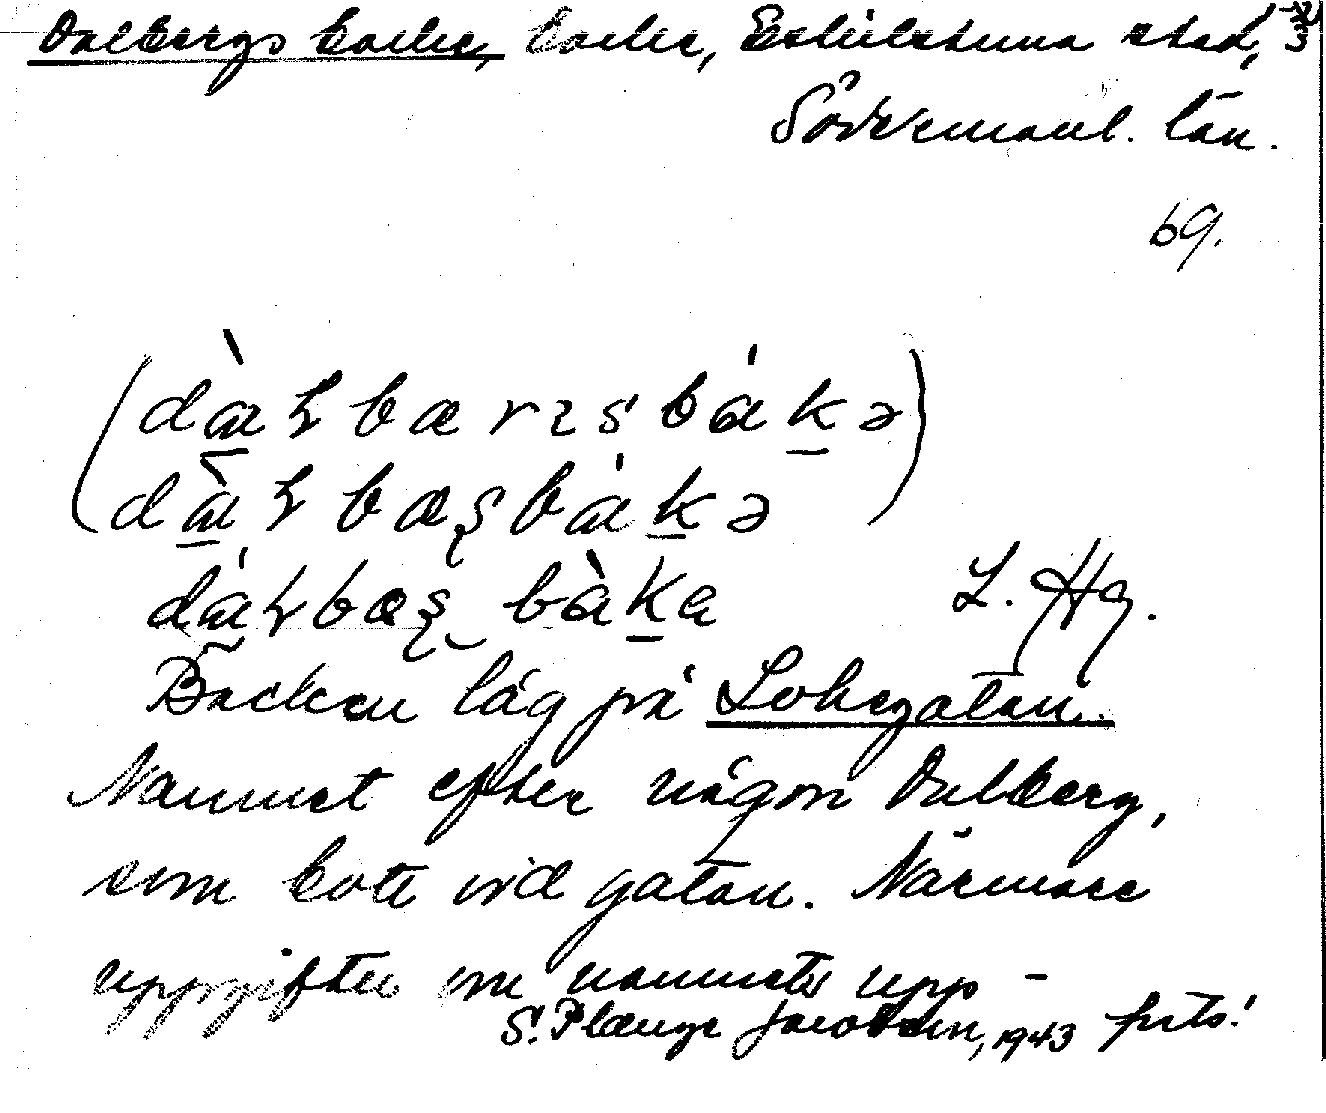 Dalbergs backe, backe, Eskilstuna stad,
Södermanl. län.
69.
L. Hg.
Backen låg på Lohegatan.
Namnet efter någon Dalberg,
som bott vid gatan. Närmare
uppgifter om namnets upp-
S. Plænge Jacobson, 1943 forts!